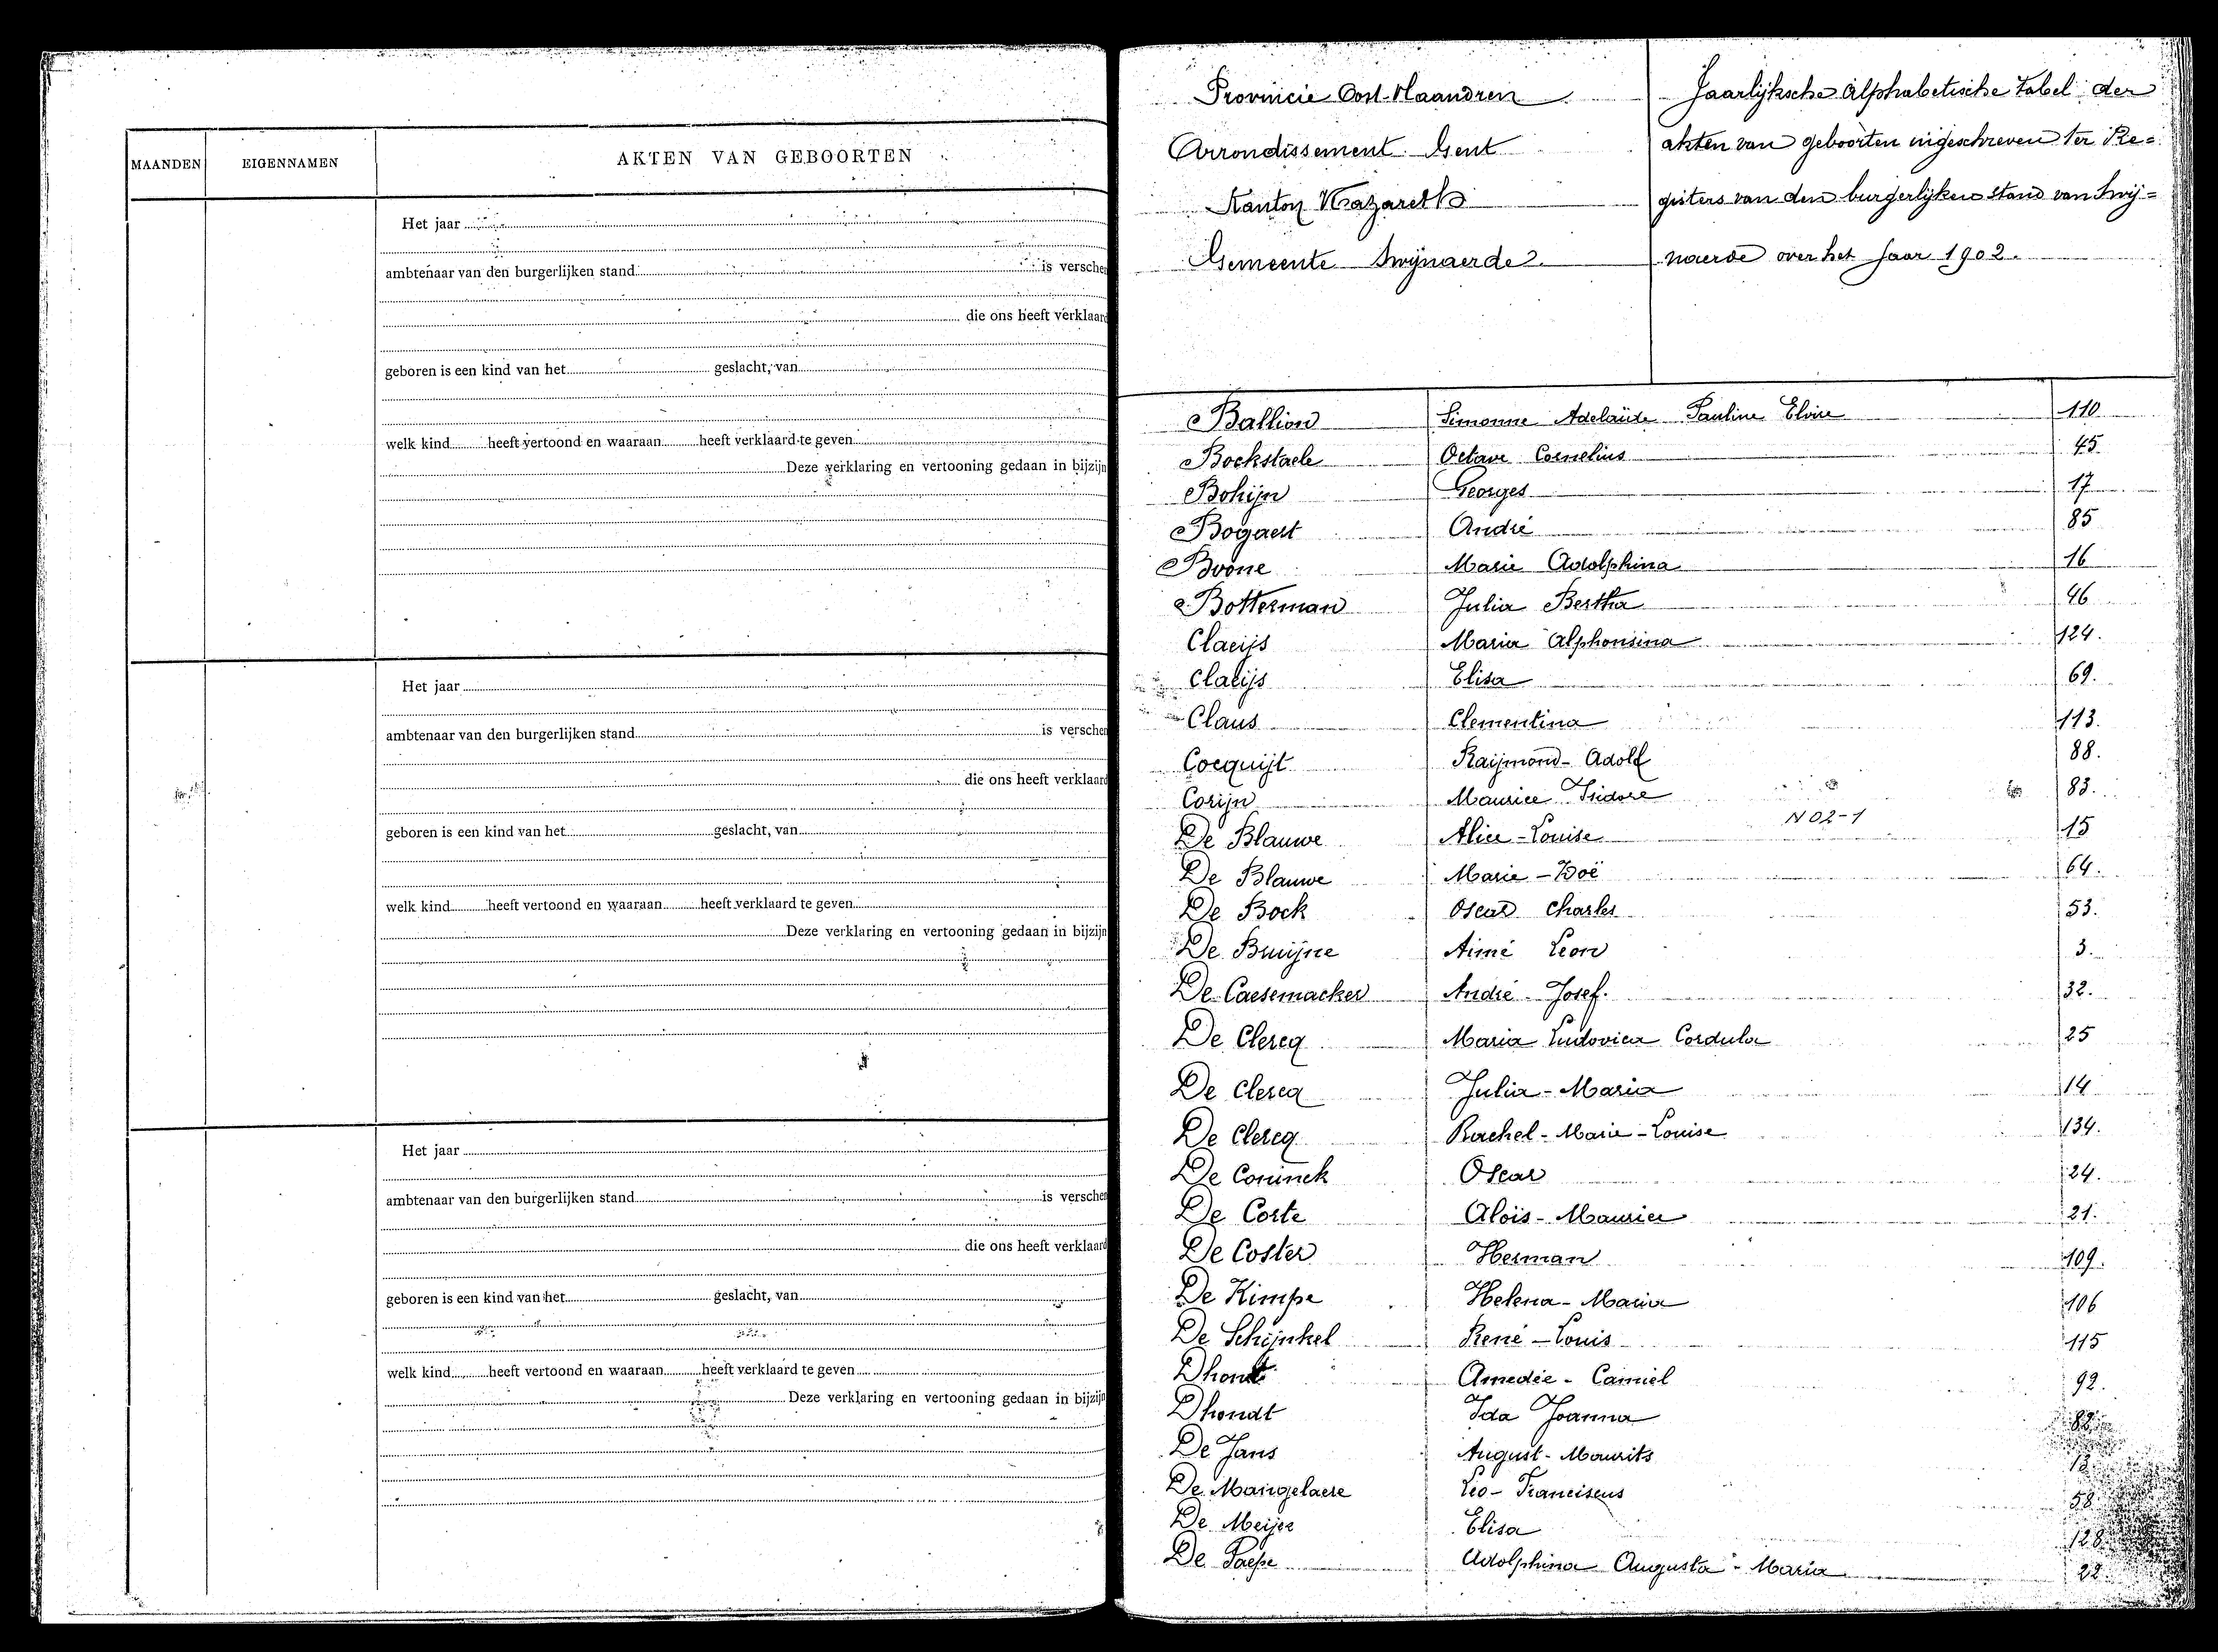 MAANDEN EIGENNAMEN AKTEN VAN GEBOORTEN
Het jaar
ambtenaar van den burgerlijken stand is verschen
die ons heeft verklaard
geboren is een kind van het geslacht, van
welk kind heeft vertoond en waaraan heeft verklaard te geven
Deze verklaring en vertooning gedaan in bijzijn
Het jaar
ambtenaar van den burgerlijken stand is verschen
die ons heeft verklaard
geboren is een kind van het geslacht, van
welk kind heeft vertoond en waaraan heeft verklaard te geven
Deze verklaring en vertooning gedaan in bijzijn
Het jaar
ambtenaar van den burgerlijken stand is verschen
die ons heeft verklaard
geboren is een kind van het geslacht, van
welk kind heeft vertoond en waaraan heeft verklaard te geven
Deze verklaring en vertooning gedaan in bijzijn
Provincie Oost-Vlaandren
Arrondissement Gent
Kanton Nazareth
Gemeente Swijnaerde
Jaarlijksche Alphabetische tabel der
akten van geboorten ingeschreven ter Re=
gisters van den burgerlijken stand van Swij=
naerde over het jaar 1902.
Ballion Simonne Adelaïde Pauline Elvire 110
Bockstaele Octave Cornelius 45
Bohijn Georges 17
Bogaert André 85
Boone Marie Adolphina 16
Botterman Julia Bertha 46
Claeijs Maria Alphonsina 124.
Claeijs Elisa 69.
Claus Clementina 113.
Cocquijt Raijmond-Adolf 88.
Corijn Maurice Isidore 83.
N02-1
De Blauwe Alice-Louise 15
De Blauwe Marie-Zoë 64.
De Bock Oscar Charles 53.
De Bruijne Aimé Leon 3.
De Caesemacker André Josef. 32.
De Clercq Maria Ludovica Cordula 25
De Clercq Julia-Maria 14
De Clercq Rachel-Marie-Louise 134.
De Coninck Oscar 24.
De Corte Aloïs-Maurice 21.
De Coster Herman 109.
De Kimpe Helena-Maria 106
De Schijnkel René-Louis 115
Dhondt Amedée-Camiel 92.
Dhondt Ida Joanna 82.
De Jans August-Maurits 13
De Mangelaere Leo-Franciscus 58
De Meijer Elisa 128
De Paepe Adolphina Augusta-Maria 22